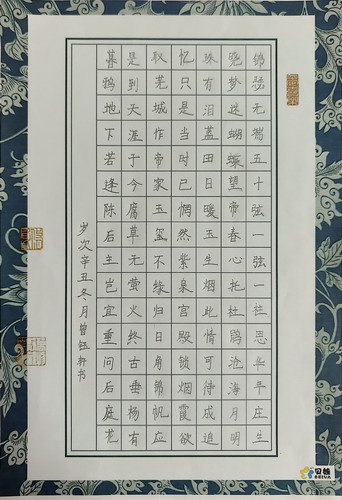 锦瑟无端五十弦一弦一柱思华年庄生
晓梦迷蝴蝶望帝春心托杜鹃沧海月明
珠有泪蓝田日暖玉生烟此情可待成追
忆只是当时已惘然紫泉宫殿锁烟霞欲
取芜城作帝家玉玺不缘归日角锦帆应
是到天涯于今腐草无萤火终古垂杨有
暮鸦地下若逢陈后主岂宜重问后庭花
岁次辛丑冬月曾钰轩书